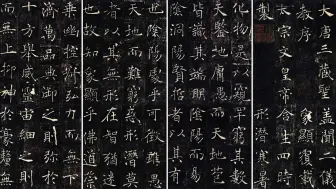 大唐三藏聖
教序
太宗文皇帝
製
蓋聞二儀有
像顯覆
含生四時
形潛寒暑
天鑒地庸愚
皆識其端明
陰洞陽賢哲
窮其數
然而天地苞
乎陰陽而易
識者以其有
陰陽處乎
地而難窮者
以其無形也
故知象顯
可徵雖愚
不惑形潛
在智猶迷
乎佛道崇
乘幽控寂弘
濟萬品典御
十方舉威靈
而無上抑神
力而無下
大之則彌於
宙細之則
於毫釐